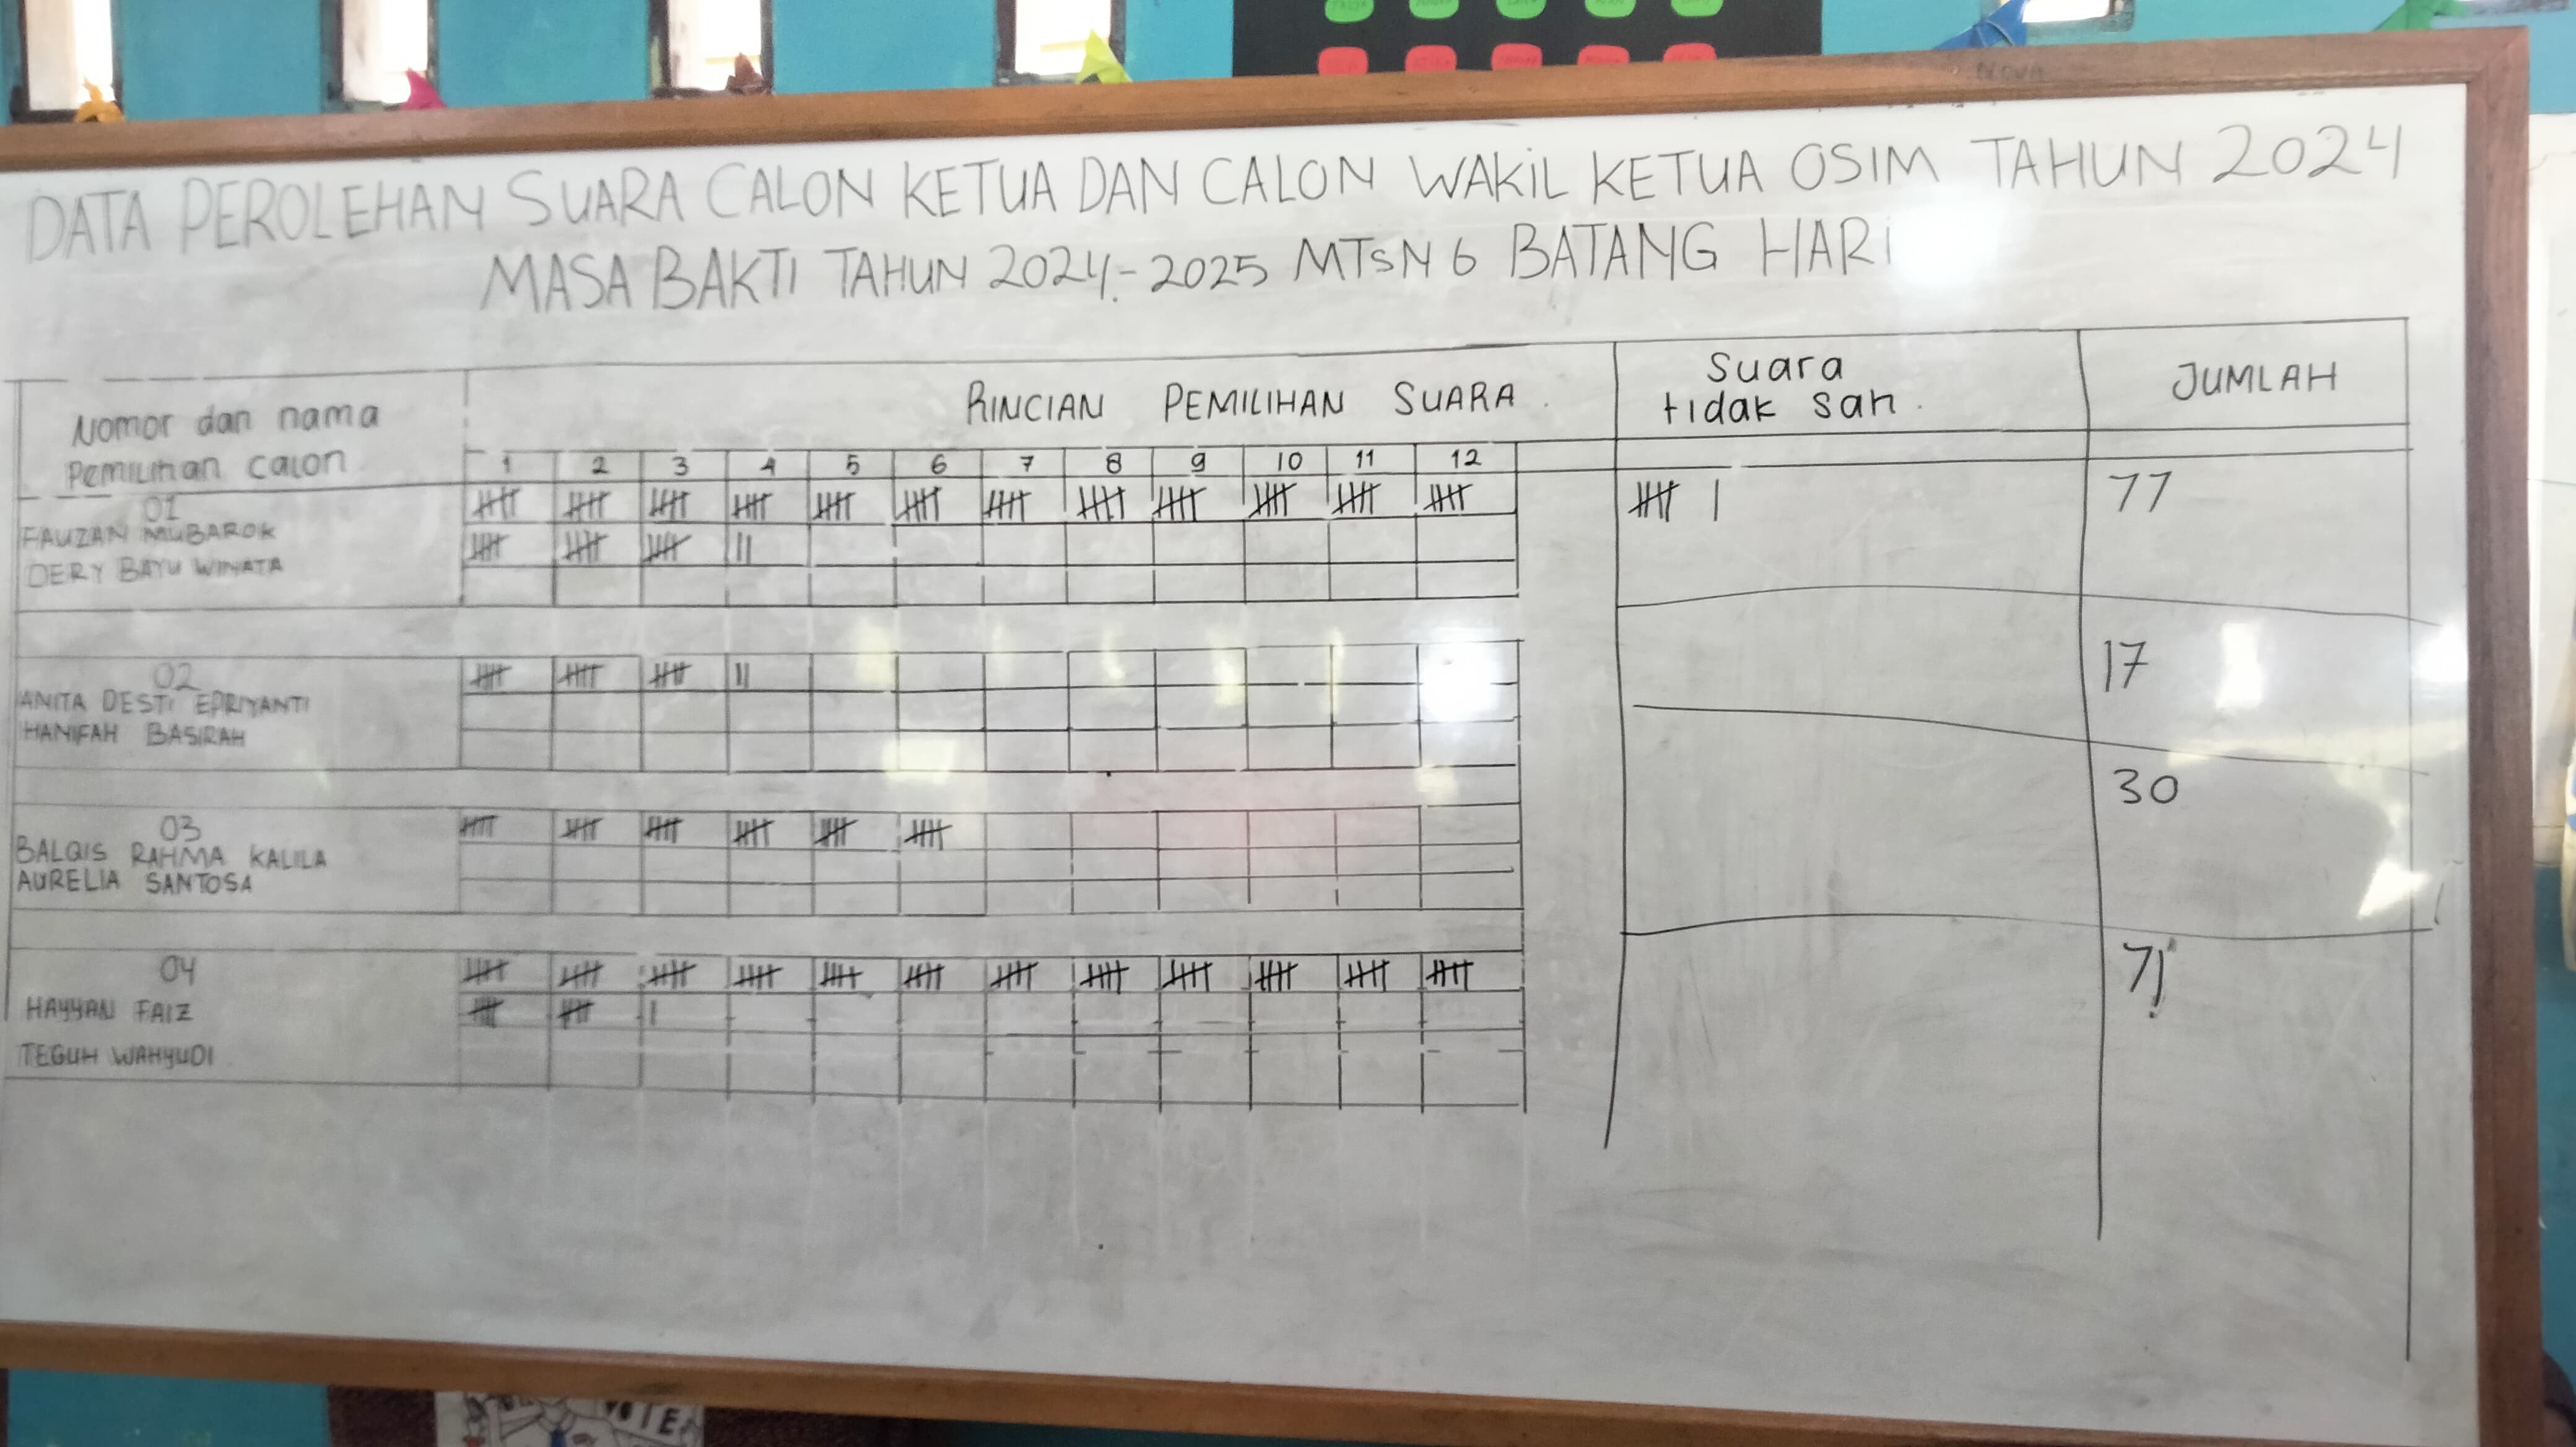 DATA PEROLEHAN SUARA CALON KETUA DAN CALON WAKIL KETUA OSIM TAHUN 2024
MASA BAKTI TAHUN 2024-2025 MTsN 6 BATANG HARI
Nomor dan nama
Pemilihan calon
RINCIAN PEMILIHAN SUARA
Suara
tidak sah
JUMLAH
1 2 3 4 5 6 7 8 9 10 11 12
01
FAUZAN MUBAROK
DERY BAYU WINATA
77
02
ANITA DESTI EPRIYANTI
HANIFAH BASIRAH
17
03
BALQIS RAHMA KALILA
AURELIA SANTOSA
30
04
HAYYAN FAIZ
TEGUH WAHYUDI
71